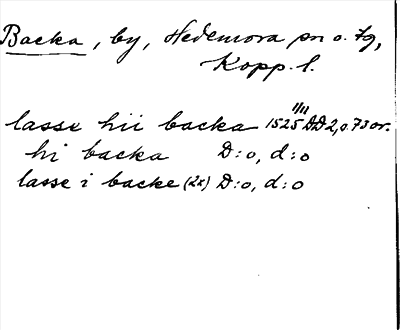 Backa, by, Hedemora sn o. tg,
Kopp. l.
lasse hii backa 1525 11/11 DD 2, o. 73 or.
hi backa D:o, d:o
lasse i backe (2x) D:o, d:o